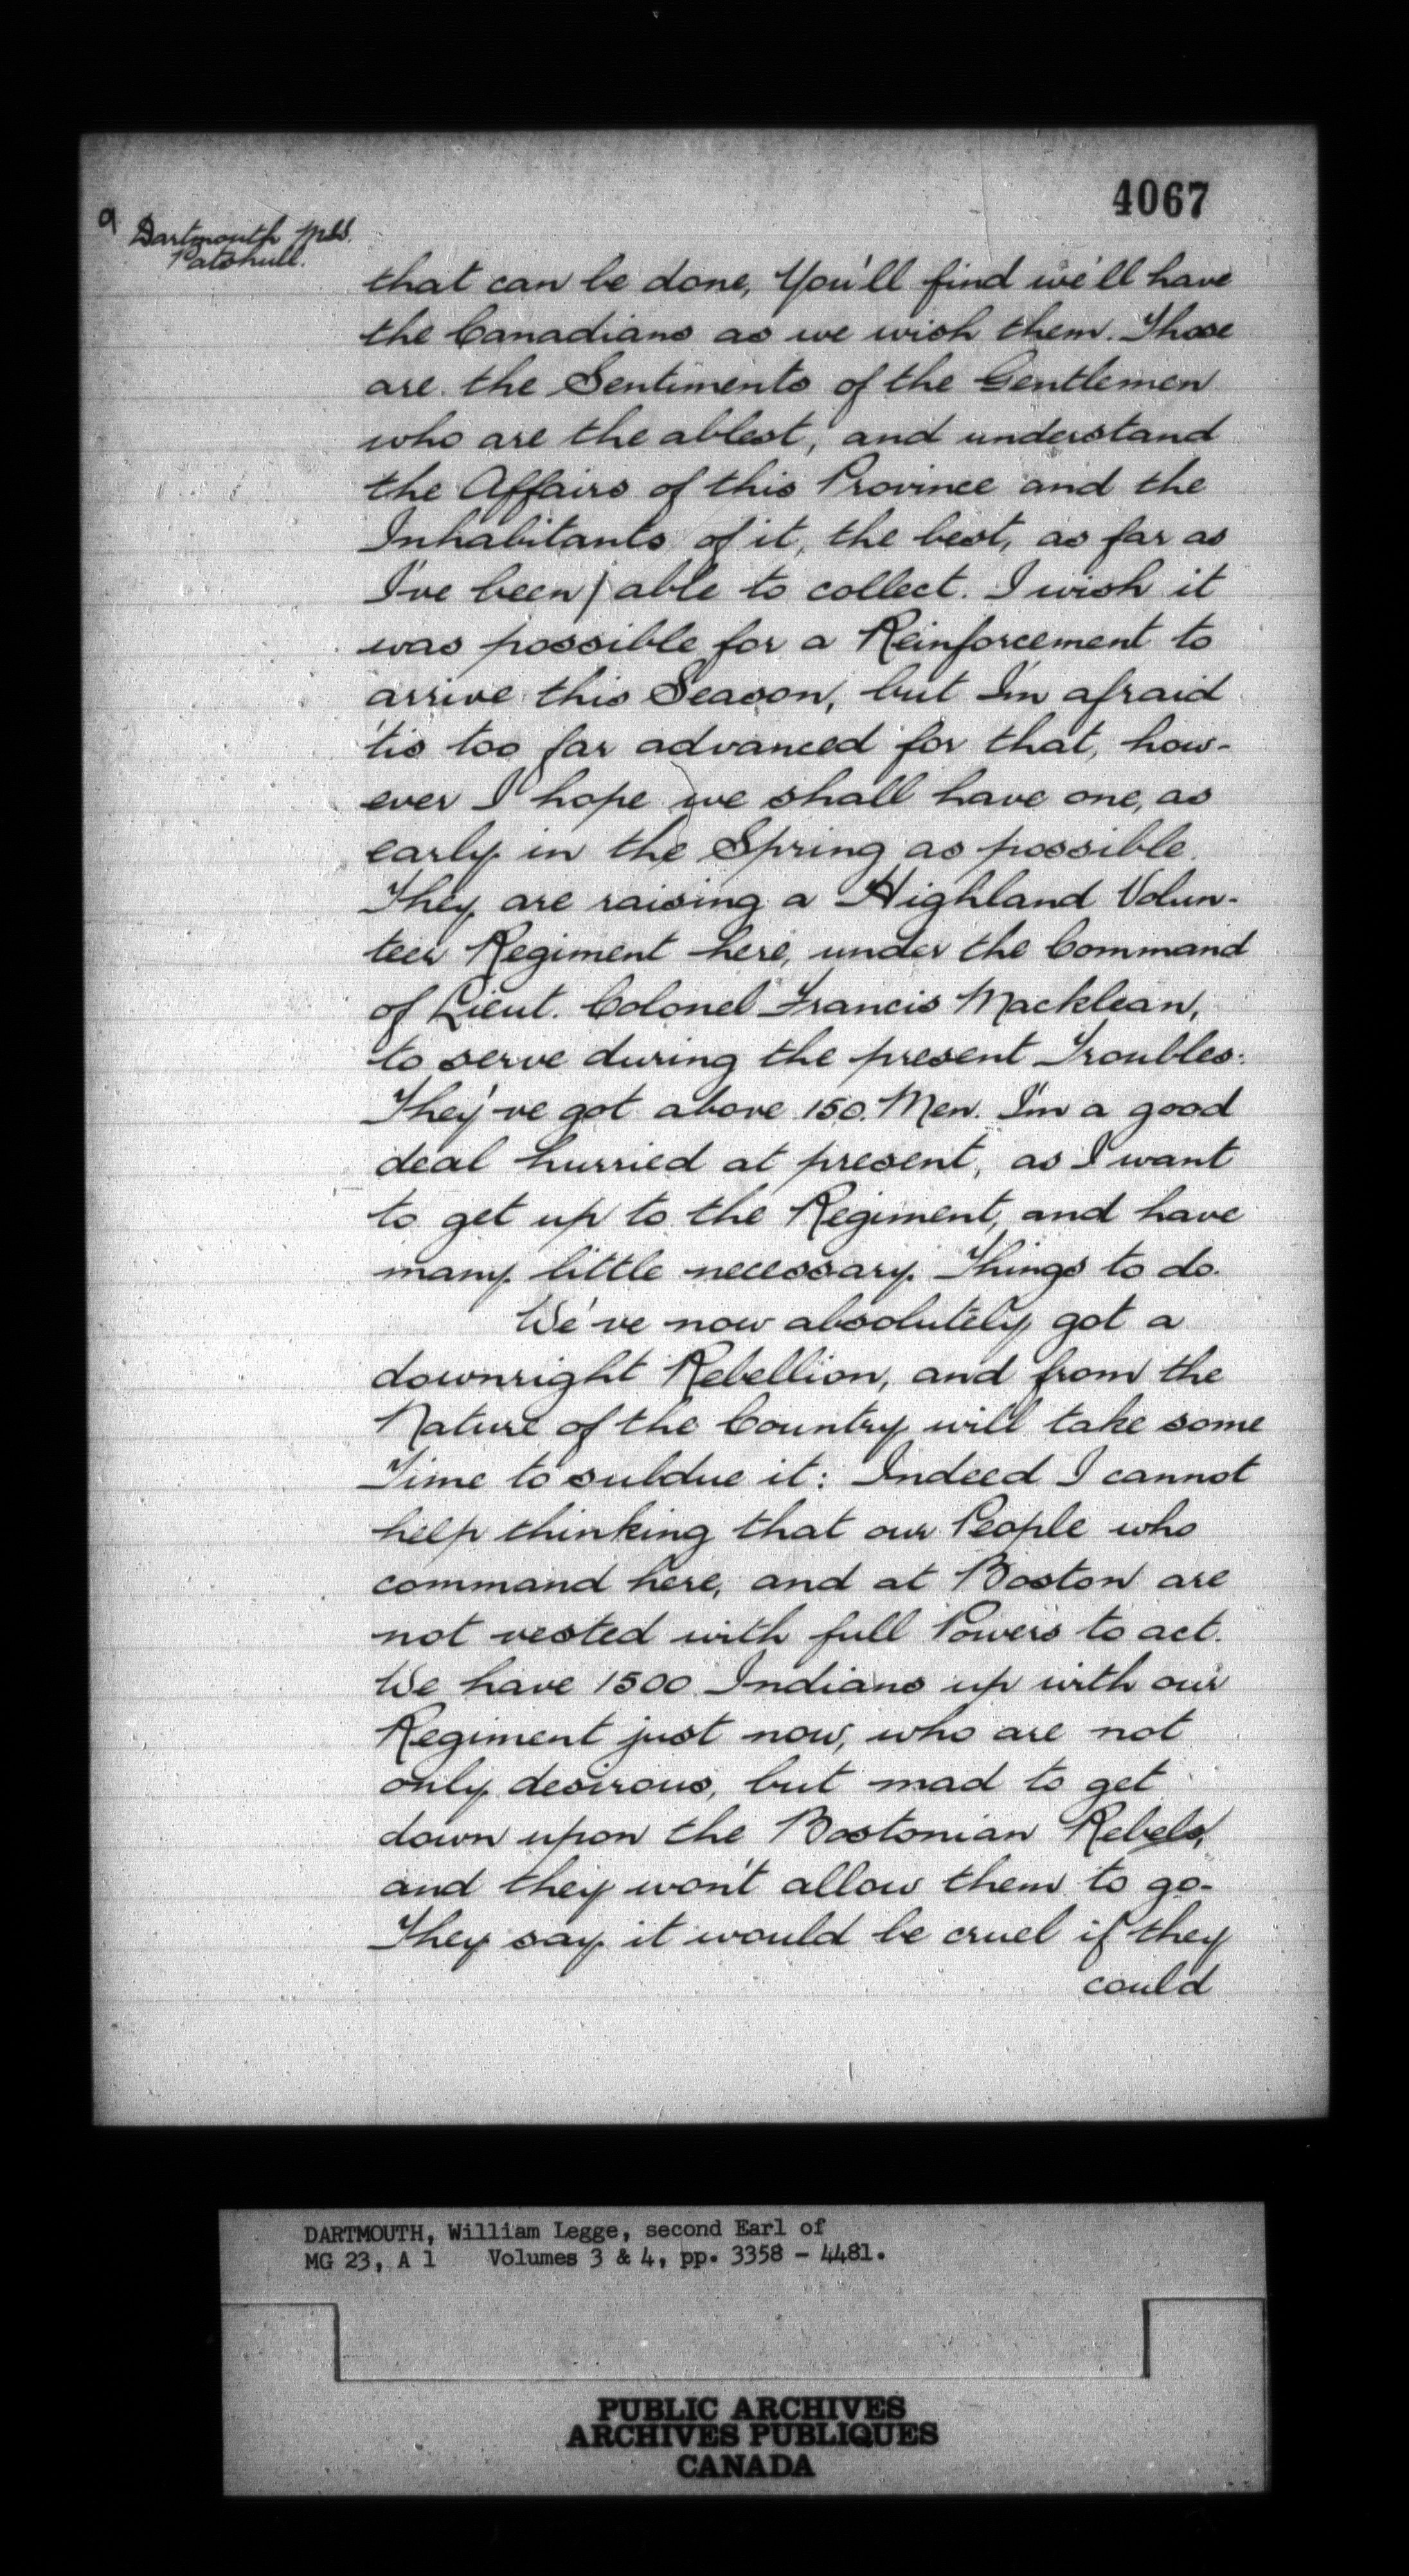 4067
9 Dartmouth Mss.
Patshull.
that can be done, You'll find we'll have
the Canadians as we wish them. Those
are the Sentiments of the Gentlemen
who are the ablest, and understand
the Affairs of this Province and the
Inhabitants of it, the best, as far as
I've been / able to collect. I wish it
was possible for a Reinforcement to
arrive this Season, but I'm afraid
'tis too far advanced for that, how-
ever I hope we shall have one, as
early in the Spring as possible.
They are raising a Highland Volun-
teer Regiment here, under the Command
of Lieut. Colonel Francis Macklean,
to serve during the present Troubles.
They've got above 150. Men. I'm a good
deal hurried at present, as I want
to get up to the Regiment, and have
many little necessary Things to do.
We've now absolutely got a
downright Rebellion, and from the
Nature of the Country will take some
Time to subdue it: Indeed I cannot
help thinking that our People who
command here, and at Boston are
not vested with full Powers to act.
We have 1500 Indians up with our
Regiment just now, who are not
only desirous, but mad to get
down upon the Bostonian Rebels,
and they won't allow them to go-
They say it would be cruel if they
could
DARTMOUTH, William Legge, second Earl of
MG 23, A 1 Volumes 3 & 4, pp. 3358 - 4481.
PUBLIC ARCHIVES
ARCHIVES PUBLIQUES
CANADA